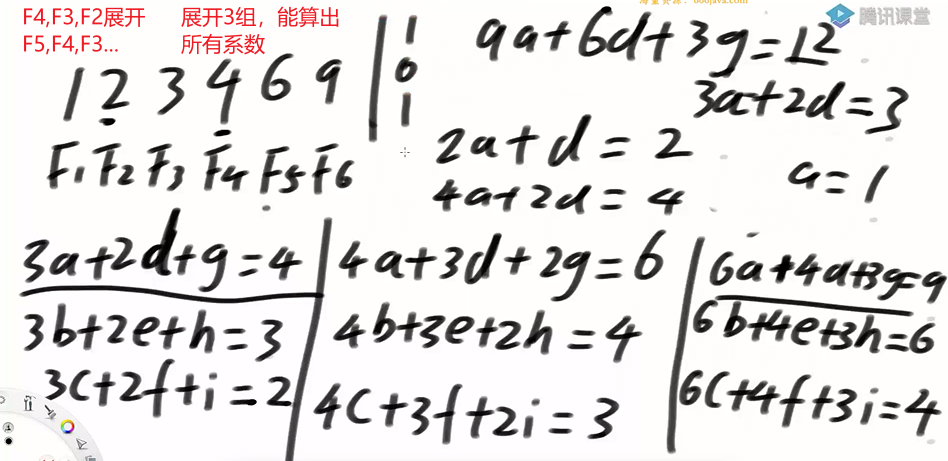 F4,F3,F2展开 展开3组，能算出
F5,F4,F3... 所有系数
腾讯课堂
1 2 3 4 6 9
1
0
1
F1 F2 F3 F4 F5 F6
9a+6d+3g=12
3a+2d=3
2a+d=2
4a+2d=4
a=1
3a+2d+g=4
3b+2e+h=3
3c+2f+i=2
4a+3d+2g=6
4b+3e+2h=4
4c+3f+2i=3
6a+4d+3g=9
6b+4e+3h=6
6c+4f+3i=4